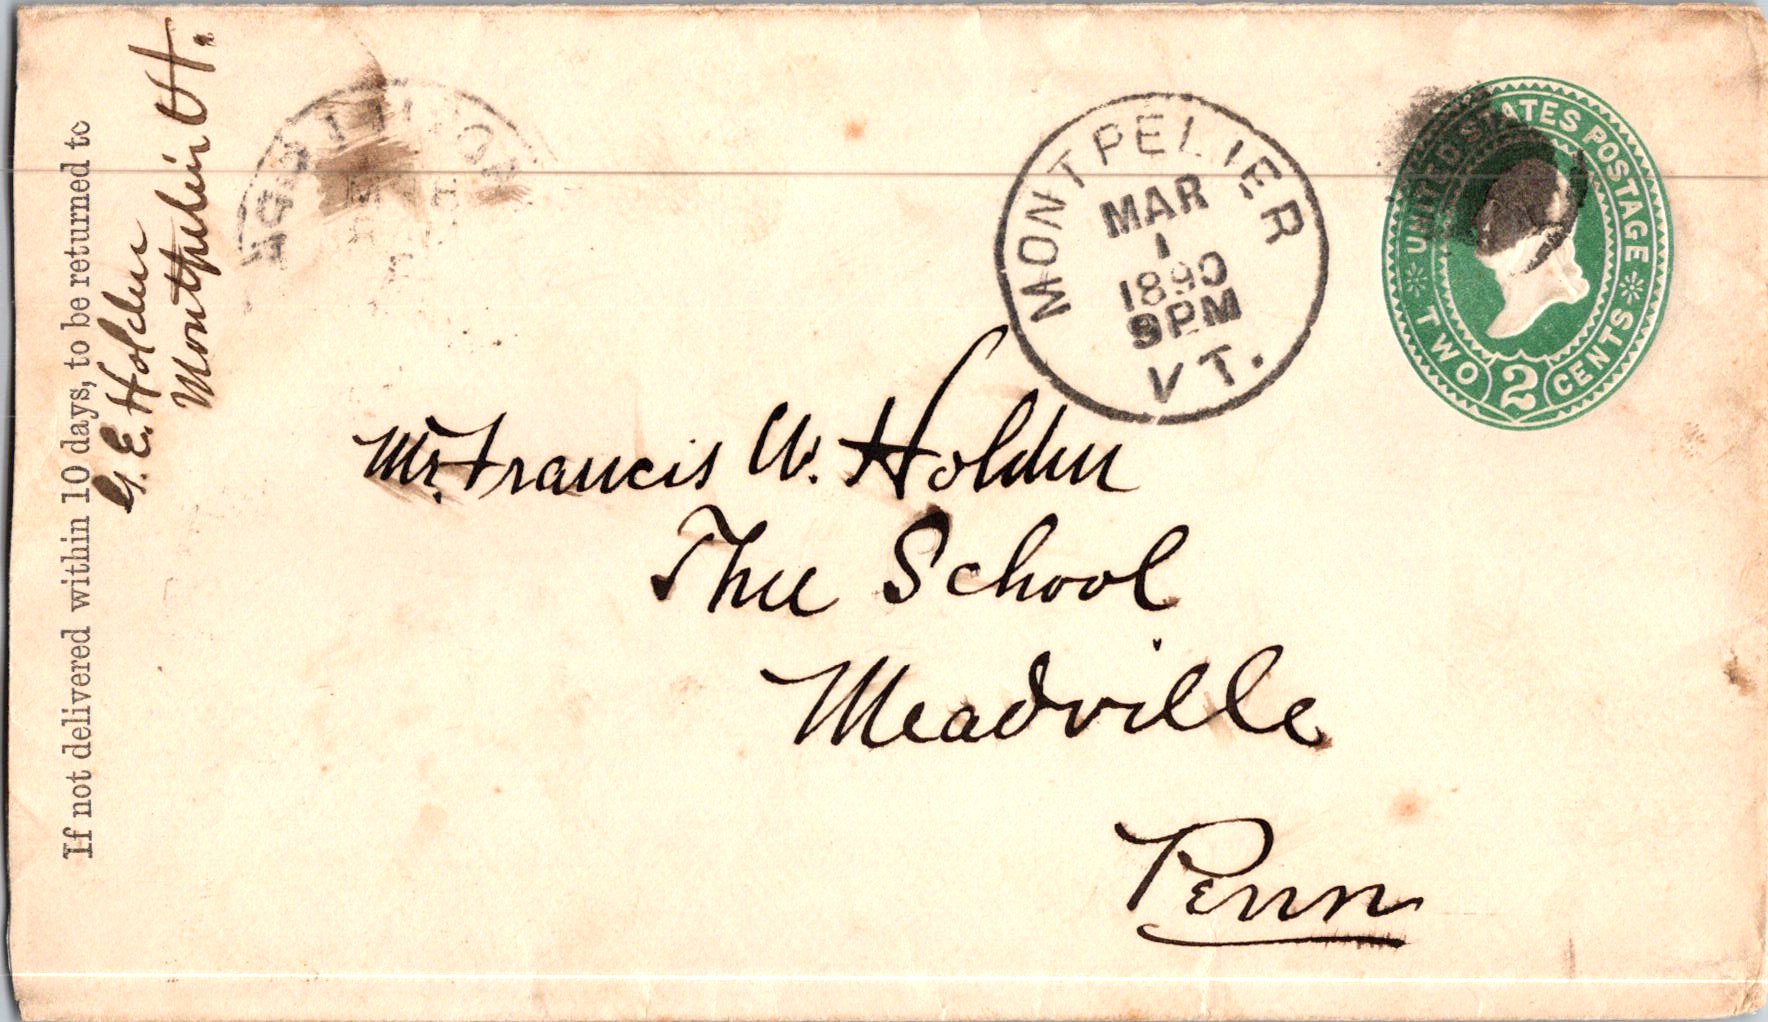 If not delivered within 10 days, to be returned to
G. E. Holden
Montpelier Vt.
MONTPELIER
MAR
1
1890
9PM
VT.
UNITED STATES POSTAGE
TWO 2 CENTS
Mr. Francis W. Holden
The School
Meadville
Penn